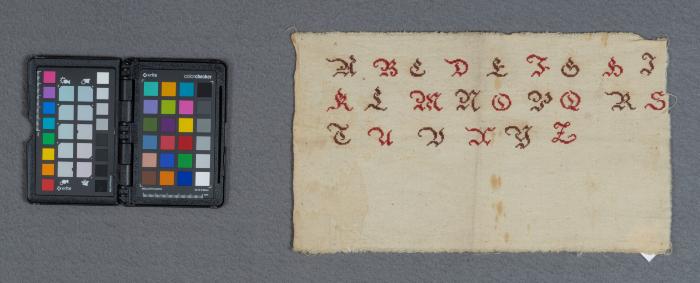 x-rite colorchecker
A B C D E F G H I
K L M N O P Q R S
T U V X Y Z
x-rite